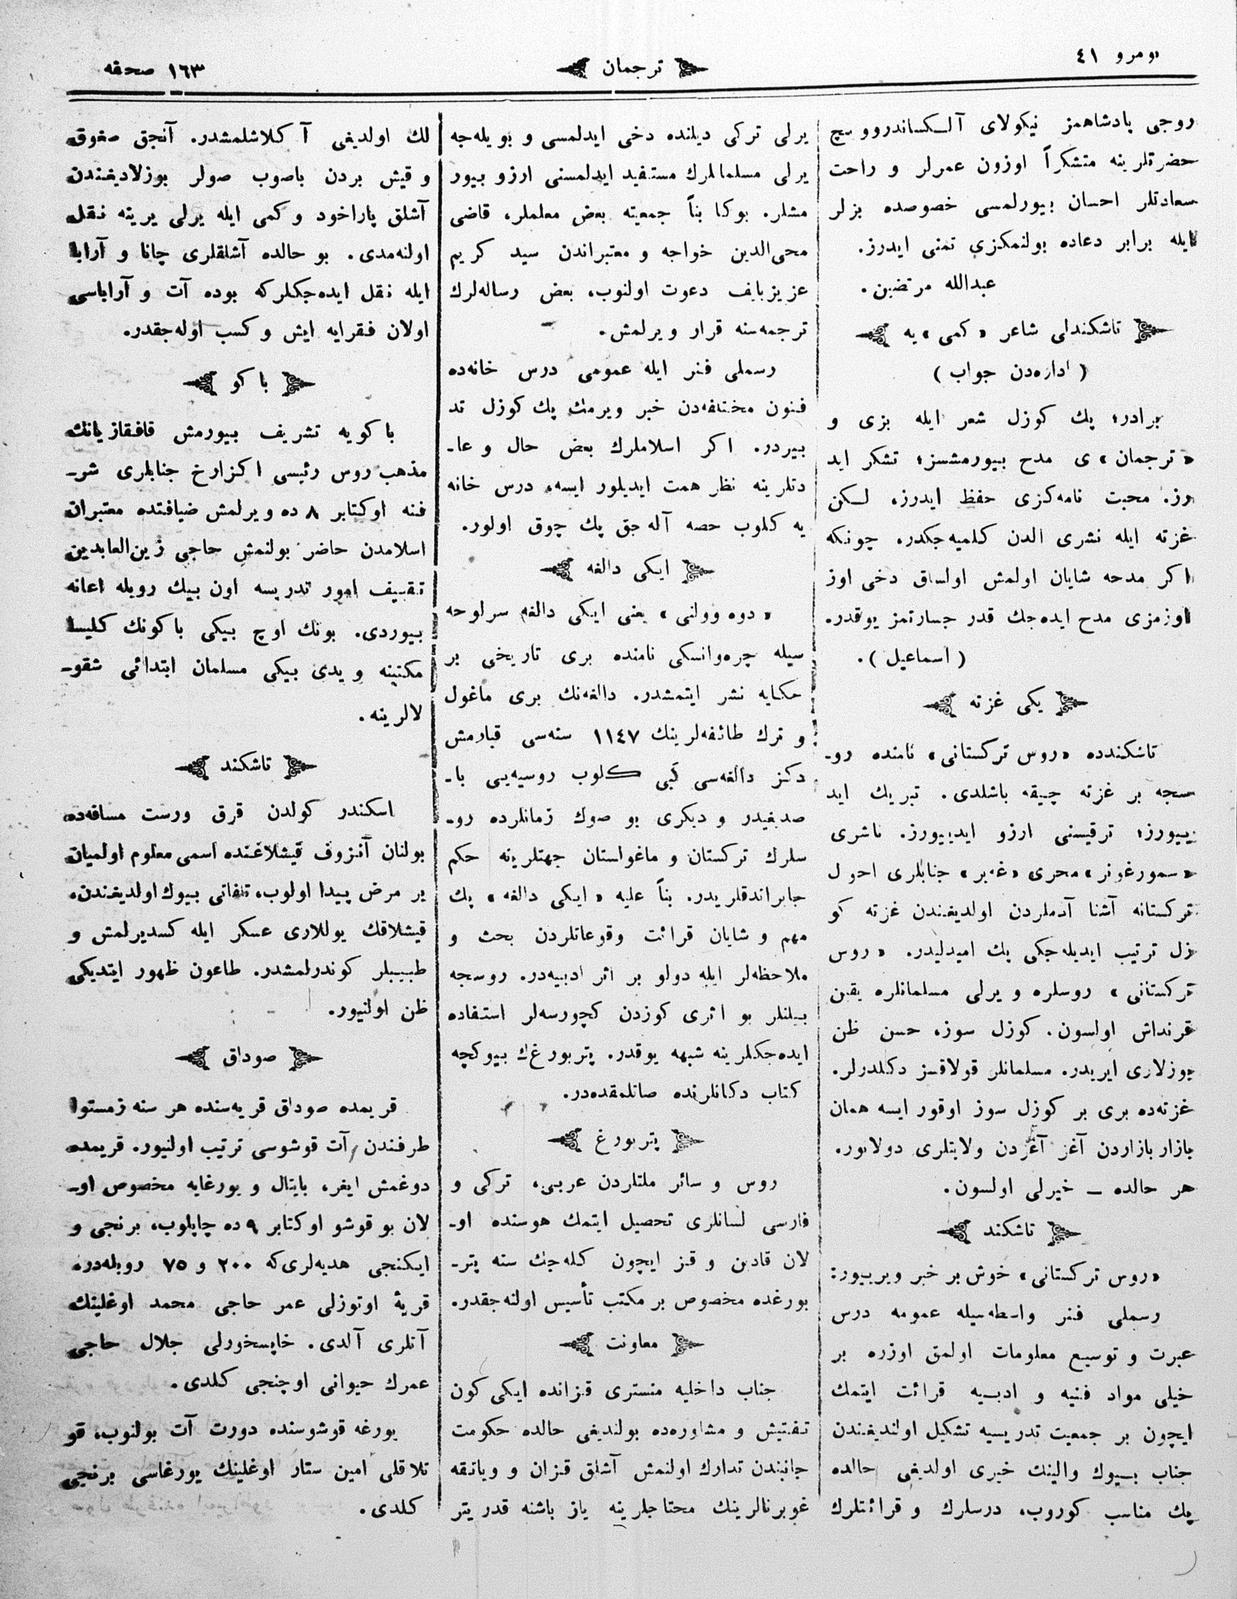 نومرو ٤١
ترجمان
١٦٣ صحفه
روجی پادشاهمز نیکولای آلکساندروویچ
حضرتلرینه متشکراً اوزون عمرلر و راحت
سعادتلر احسان بیورلمسی خصوصده بزلر
ایله برابر دعاده بولنمکزی تمنی ایدرز.
عبدالله مرتضین.
تاشکندلی شاعر «کمی» یه
(اداره‌دن جواب)
برادر؛ پك کوزل شعر ایله بزی و
«ترجمان» ی مدح بیورمشسز؛ تشکر اید
رز. محبت نامه‌کزی حفظ ایدرز، لکن
غزته ایله نشری الدن کلمیه‌جکدر. چونکه
اکر مدحه شایان اولمش اولساق دخی اوز
اوزمزی مدح ایده‌جك قدر جسارتمز یوقدر.
(اسماعیل).
یکی غزته
تاشکندده «روس ترکستانی» نامنده رو-
سجه بر غزته چیقه باشلدی. تبریك اید
ییورز؛ ترقیسنی ارزو ایدییورز. ناشری
«سمورغونر» محری «غیر» جنابلری احول
ترکستانه آشنا آدملردن اولدیغندن غزته کو
زل ترتیب ایدیله‌جکی پك امیدلیدر. «روس
ترکستانی» روسلره و یرلی مسلمانلره یقین
قرنداش اولسون. کوزل سوز، حسن ظن
یوزلاری ایریدر. مسلمانلر قولاقسز دکلدرلر.
غزته‌ده بری بر کوزل سوز اوقور ایسه همان
بازار بازاردن آغز آغزدن ولایتلری دولانور.
هر حالده — خیرلی اولسون.
تاشکند
«روس ترکستانی» خوش بر خبر ویرییور:
رسملی فنر واسطه‌سیله عمومه درس
عبرت و توسیع معلومات اولمق اوزره بر
خیلی مواد فنیه و ادبیه قرائت ایتمك
ایچون بر جمعیت تدریسیه تشکیل اولندیغندن
جناب بیوك والینك خبری اولدیغی حالده
پك مناسب کوروب، درسلرك و قرائتلرك
یرلی ترکی دیلنده دخی ایدلمسی و بویله‌جه
یرلی مسلمانلرك مستفید ایدلمسنی ارزو بیور
مشلر. بوکا بناً جمعیته بعض معلملر، قاضی
محی‌الدین خواجه و معتبراندن سید کریم
عزیزبایف دعوت اولنوب، بعض رساله‌لرك
ترجمه‌سنه قرار ویرلمش.
رسملی فنر ایله عمومی درس خانه‌ده
فنون مختلفه‌دن خبر ویرمك پك کوزل تد
بیردر. اکر اسلاملرك بعض حال و عا-
دتلرینه نظر همت ایدیلور ایسه، درس خانه
یه کلوب حصه آله‌جق پك چوق اولور.
ایکی دالغه
«دوه وولنی» یعنی ایکی دالغه سرلوحه
سیله چره‌وانسکی نامنده بری تاریخی بر
حکایه نشر ایتمشدر. دالغه‌نك بری ماغول
و ترك طائفه‌لرینك ١١٤٧ سنه‌سی قبارمش
دکز دالغه‌سی کبی کلوب روسیه‌یی با-
صدیغیدر و دیکری بو صوك زمانلرده رو-
سلرك ترکستان و ماغولستان جهتلرینه حکم
جابراندقلریدر. بناً علیه «ایکی دالغه» پك
مهم و شایان قرائت وقوعاتلردن بحث و
ملاحظه‌لر ایله دولو بر اثر ادبیه‌در. روسجه
بیلنلر بو اثری کوزدن کچورسه‌لر استفاده
ایده‌جکلرینه شبهه یوقدر. پتربورغ‌ك بیوکچه
کتاب دکانلرنده صاتلمقده‌در.
پتربورغ
روس و سائر ملتلردن عربی، ترکی و
فارسی لسانلری تحصیل ایتمك هوسنده او-
لان قادین و قز ایچون کله‌جك سنه پتر-
بورغده مخصوص بر مکتب تأسیس اولنه‌جقدر.
معاونت
جناب داخلیه منستری قزانده ایکی کون
تفتیش و مشاوره‌ده بولندیغی حالده حکومت
جانبندن تدارك اولنمش آشلق قزان و ویاتقه
غوبرنالرینك محتاجلرینه یاز باشنه قدر یتر
لك اولدیغی آکلاشلمشدر. آنجق صغوق
و قیش بردن باصوب صولر بوزلادیغندن
آشلق پاراخود و کمی ایله یرلی یرینه نقل
اولنه‌مدی. بو حالده آشلقلری چانا و آرابا
ایله نقل ایده‌جکلرکه بوده آت و آراباسی
اولان فقرایه ایش و کسب اوله‌جقدر.
باکو
باکویه تشریف بیورمش قافقازیانك
مذهب روس رئیسی اکزارخ جنابلری شر-
فنه اوکتابر ٨ ده ویرلمش ضیافتده معتبران
اسلامدن حاضر بولنمش حاجی زین‌العابدین
تقییف امور تدریسه اون بیك روبله اعانه
بیوردی. بونك اوچ بیکی باکونك کلیسا
مکتبنه و یدی بیکی مسلمان ابتدائی شقو-
لالرینه.
تاشکند
اسکندر کولدن قرق ورست مسافه‌ده
بولنان آنزوف قیشلاغنده اسمی معلوم اولمیان
بر مرض پیدا اولوب، تلفاتی بیوك اولدیغندن،
قیشلاقك یوللاری عسکر ایله کسدیرلمش و
طبیبلر کوندرلمشدر. طاعون ظهور ایتدیکی
ظن اولنیور.
صوداق
قریمده صوداق قریه‌سنده هر سنه زمستوا
طرفندن آت قوشوسی ترتیب اولنیور. قریمده
دوغمش ایغر، بایتال و یورغایه مخصوص او-
لان بو قوشو اوکتابر ٩ ده چاپلوب، برنجی و
ایکنجی هدیه‌لری‌که ٢٠٠ و ٧٥ روبله‌در،
قریهٔ اوتوزلی عمر حاجی محمد اوغلینك
آتلری آلدی. خاپسخورلی جلال حاجی
عمرك حیوانی اوچنجی کلدی.
یورغه قوشوسنده دورت آت بولنوب، قو
تلاقلی امین ستار اوغلینك یورغاسی برنجی
کلدی.